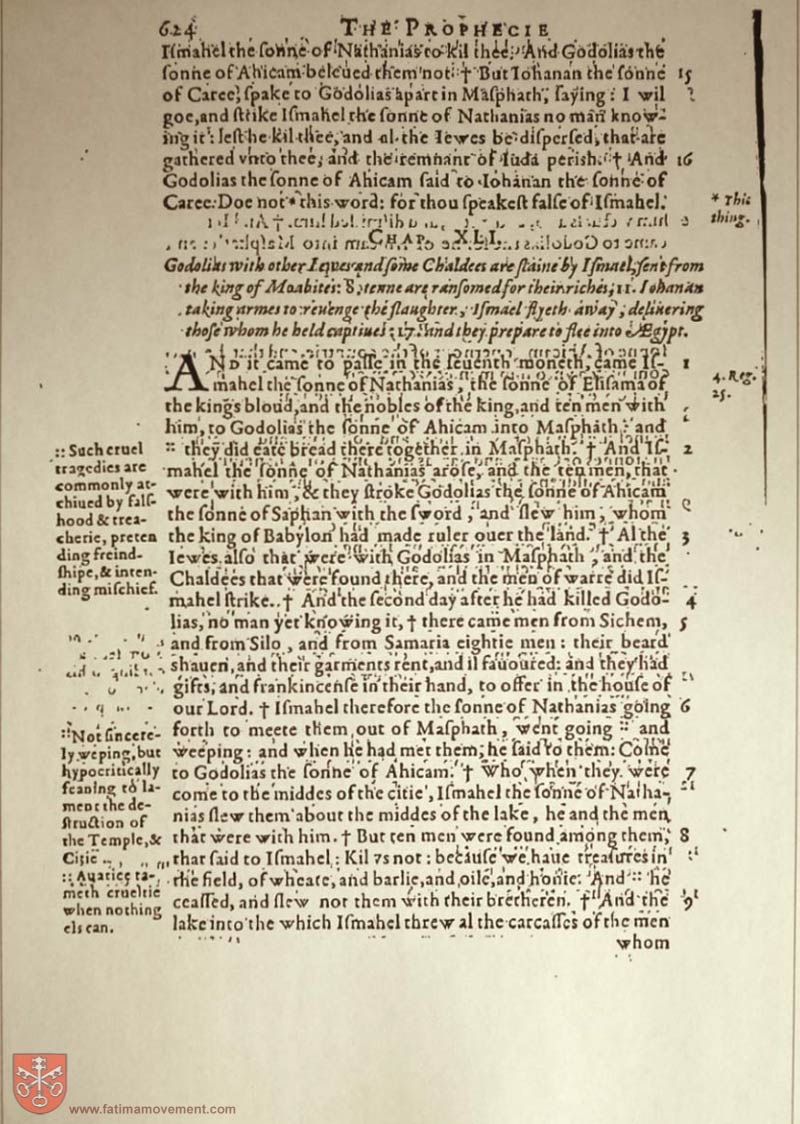 624 THE PROPHECIE
Iſmahel the ſonne of Nathanias to kil thee? And Godolias the
ſonne of Ahicam beleued them not. † But Iohanan the ſonne 15
of Caree, ſpake to Godolias apart in Maſphath, ſaying: I wil
goe, and ſtrike Iſmahel the ſonne of Nathanias no man know-
ing it: leſt he kil thee, and al the Iewes be diſperſed, that are
gathered vnto thee, and the remnant of Iuda perish. † And 16
Godolias the ſonne of Ahicam ſaid to Iohanan the ſonne of
Caree. Doe not * this word: for thou ſpeakeſt falſe of Iſmahel.
* This
thing.
CHAP. XLI.
Godolias with other Iewes and ſome Chaldees are ſlaine by Iſmael, ſent from
the king of Moabites: 8. tenne are ranſomed for their riches; 11. Iohanan
taking armes to reuenge the ſlaughter, Iſmael flyeth away, deliuering
thoſe whom he held captiues: 17. and they prepare to flee into Ægypt.
AND it came to paſſe in the ſeuenth moneth, came Iſ- 1
mahel the ſonne of Nathanias, the ſonne of Eliſama of
4. Reg.
25.
the kings bloud, and the nobles of the king, and ten men with
him, to Godolias the ſonne of Ahicam into Maſphath: and
:: they did eate bread there together in Maſphath. † And Iſ- 2
mahel the ſonne of Nathanias aroſe, and the ten men, that
were with him, & they ſtroke Godolias the ſonne of Ahicam
the ſonne of Saphan with the ſword, and ſlew him, whom
the king of Babylon had made ruler ouer the land. † Al the 3
Iewes alſo that were with Godolias in Maſphath, and the
Chaldees that were found there, and the men of warre did Iſ-
mahel ſtrike. † And the ſecond day after he had killed Godo- 4
lias, no man yet knowing it, † there came men from Sichem, 5
and from Silo, and from Samaria eightie men: their beard
shauen, and their garments rent, and il fauoured: and they had
gifts, and frankincenſe in their hand, to offer in the houſe of
our Lord. † Iſmahel therefore the ſonne of Nathanias going 6
forth to meete them out of Maſphath, went going :: and
weeping: and when he had met them, he ſaid to them: Come
to Godolias the ſonne of Ahicam. † Who when they were 7
come to the middes of the citie, Iſmahel the ſonne of Natha-
nias ſlew them about the middes of the lake, he and the men
that were with him. † But ten men were found among them, 8
that ſaid to Iſmahel: Kil vs not: becauſe we haue treaſures in
the field, of wheate, and barlie, and oile, and honie. And :: he
ceaſſed, and ſlew not them with their bretheren. † And the 9
lake into the which Iſmahel threw al the carcaſſes of the men
whom
:: Such cruel
tragedies are
commonly at-
chiued by falſ-
hood & trea-
cherie, preten
ding freind-
ſhipe, & inten-
ding miſchief.
:: Not ſincere-
ly weping, but
hypocritically
feaning to la-
ment the de-
ſtruction of
the Temple, &
Citie
:: Auarice ta-
meth crueltie
when nothing
els can.
www.fatimamovement.com